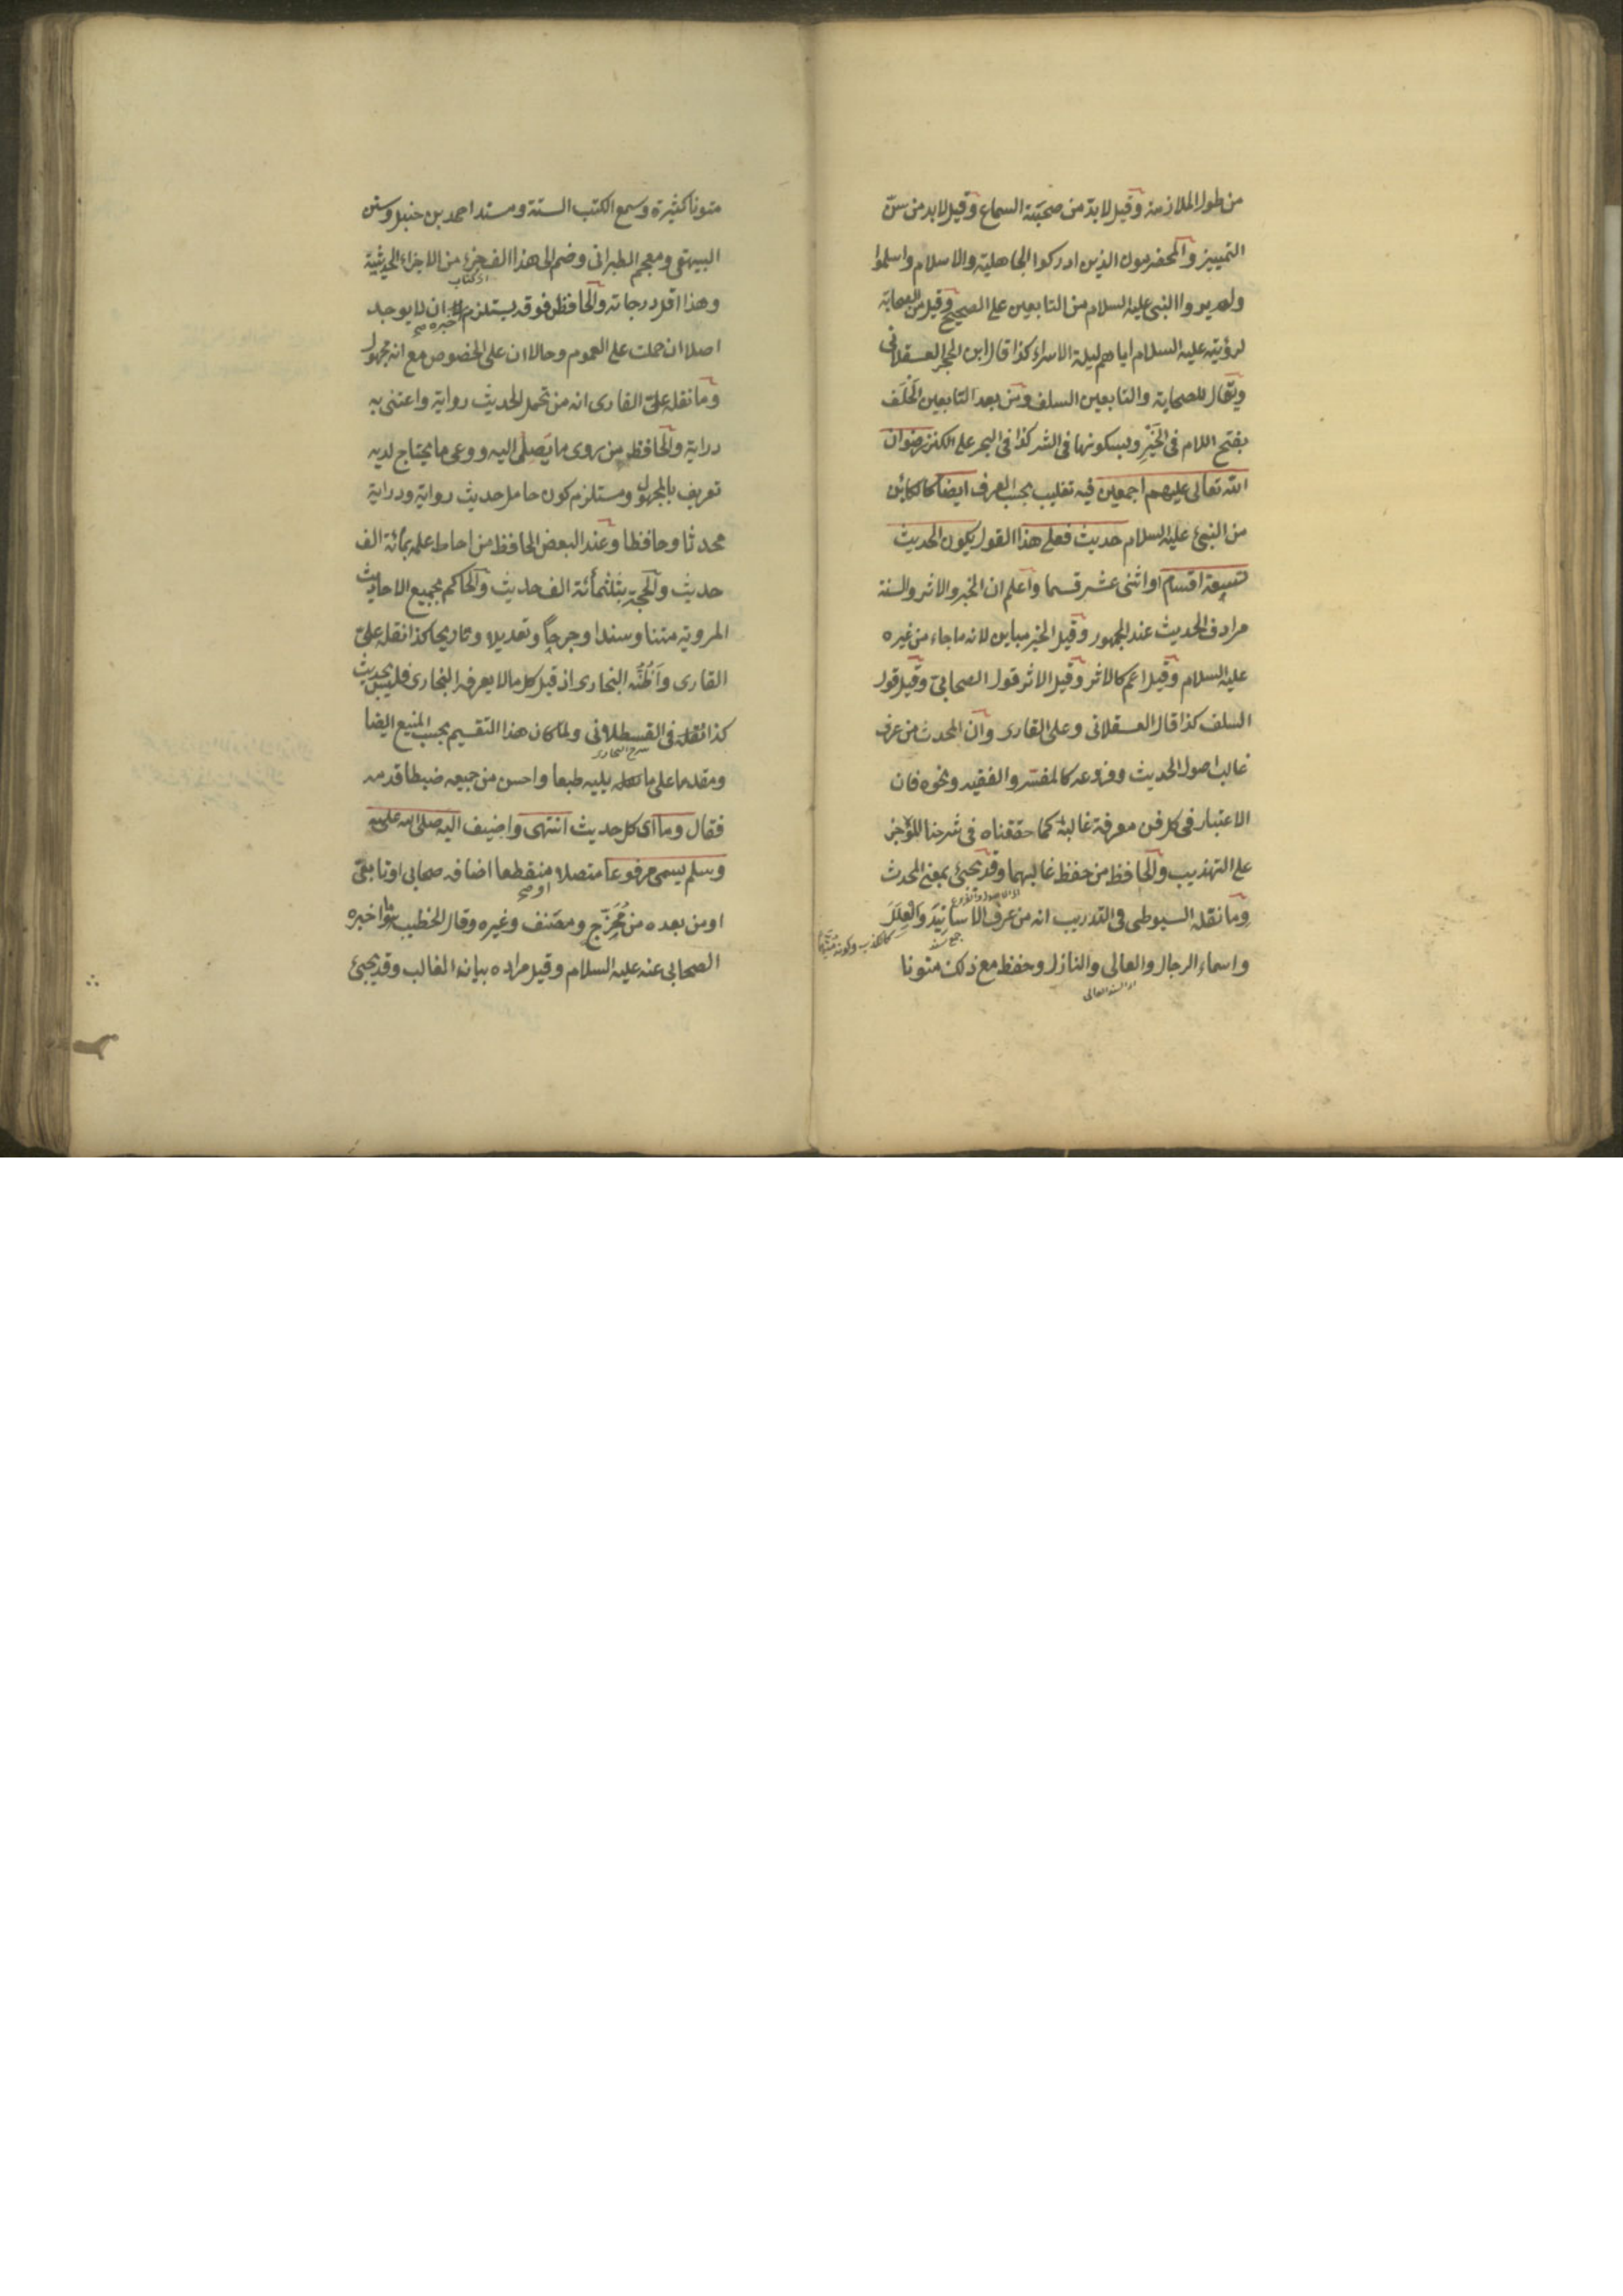 من طول الملازمة وقيل لابد من صحبته السماع وقيل لابد من سن
التمييز والمخضرمون الذين ادركوا الجاهلية والاسلام واسلموا
ولم يروا النبي عليه السلام من التابعين على الصحيح وقيل من الصحابة
لرؤيته عليه السلام اياهم ليلة الاسراء كذا قال ابن الحجر العسقلاني
ويقال للصحابة والتابعين السلف ومن بعد التابعين الخَلَف
بفتح اللام في الخَيْرِ وبسكونها في الشر كذا في البحر على الكنز رضوان
الله تعالى عليهم اجمعين فيه تغليب بحسب العرف ايضا كالكائن
من النبي عليه السلام حديث فعلى هذا القول يكون الحديث
تسعة اقسام او اثنى عشر قسما واعلم ان الخبر والاثر والسنة
مرادف الحديث عند الجمهور وقيل الخبر مباين لانه ما جاء من غيره
عليه السلام وقيل اعم كالاثر وقيل الاثر قول الصحابي وقيل قول
السلف كذا قال العسقلاني وعلى القارى وان المحدث من عرف
غالب اصول الحديث وفروعه كالمفسر والفقيه ونحوه فان
الاعتبار في كل فن معرفة غالبة كما حققناه في شرحنا المؤجز
على التهذيب والحافظ من حفظ غالبهما وقد يجئ بمعنى المحدث
وما نقله السيوطى في التدريب انه من عرف الاسانِيدَ والعِلَلَ
جمع سند
واسماء الرجال والعالى والنازل وحفظ مع ذلك متونا
اى السند العالى
متونا كثيرة وسمع الكتب الستة ومسند احمد بن حنبل وسنن
البيهقى ومعجم الطبرانى وضم الى هذا الف جزء من الاجزاء الحديثية
اى كتاب
وهذا اقل درجاته والحافظ فوقه يستلزم ان لا يوجد
اصلا ان حملت على العموم وحالا ان على الخصوص مع انه مجهول
وما نقله على القارى انه من تحمل الحديث رواية واعتنى به
دراية والحافظ من روى ما يصل اليه ووعى ما يحتاج لديه
تعريف بالمجهول ومستلزم كون حامل حديث رواية ودراية
محدثا وحافظا وعند البعض الحافظ من احاط علمه بمائة الف
حديث والحجة بثلثمائة الف حديث والحاكم بجميع الاحاديث
المروية متنا وسندا وجرحاً وتعديلا وتاريخا كذا نقله على
القارى وَاَظُنُّه البخارى اذ قيل كل ما لا يعرفه البخارى فليس بحديث
كذا نقله في القسطلانى ولما كان هذا التقسيم بحسب المنبع ايضا
شرح البخارى
ومقدما على ما يليه طبعا واحسن من جميعه ضبطا قدمه
فقال وما اى كل حديث انتهى واضيف اليه صلى الله عليه
وسلم يسمى مرفوعا متصلا منقطعا اضافه صحابى او تابعى
او صح
او من بعده من مُخَرِّج ومصنف وغيره وقال الخطيب اخبره
الصحابى عنه عليه السلام وقيل مراده بيانه الغالب وقد يجئ